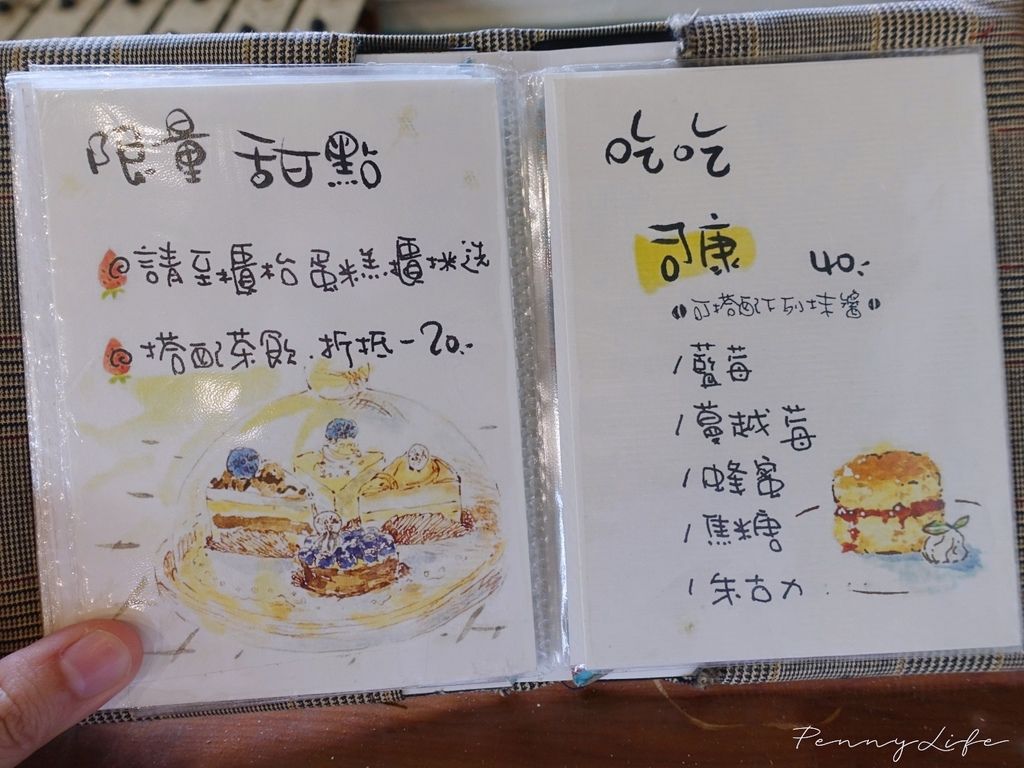 限量 甜點
請至櫃枱蛋糕櫃挑选
搭配茶飲.折抵-20.-
吃吃
司康 40.-
可搭配下列抹醬
/藍莓
/蔓越莓
/蜂蜜
/焦糖
/朱古力
PennyLife